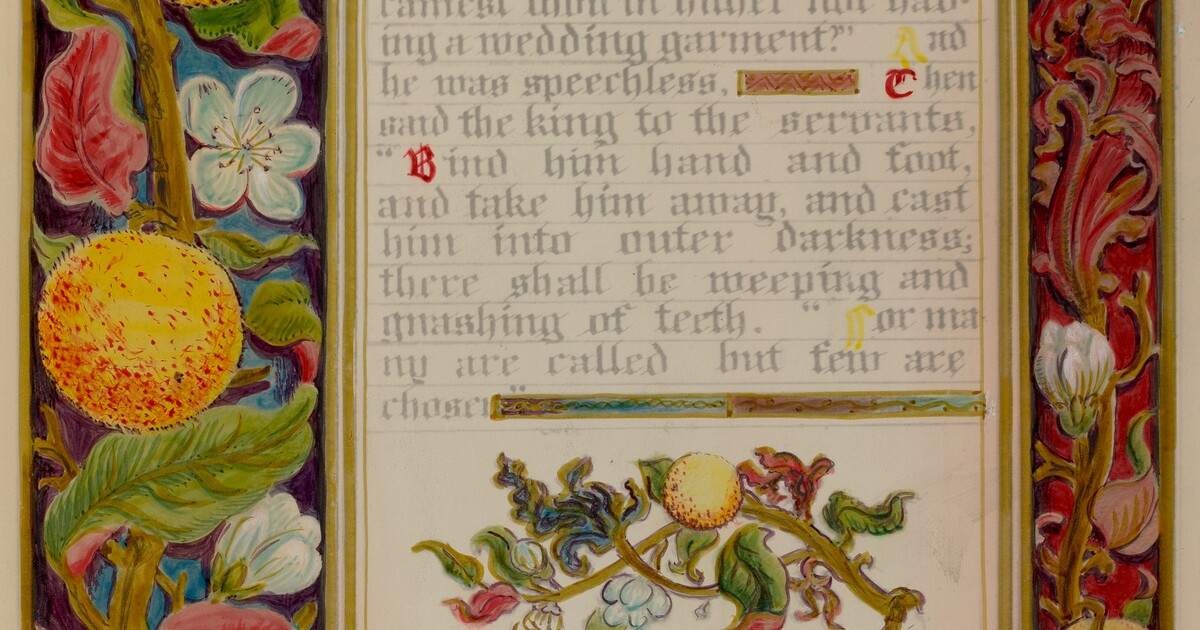 camest thou in hither not hav-
ing a wedding garment?" And
he was speechless, Then
said the king to the servants,
"Bind him hand and foot,
and take him away, and cast
him into outer darkness;
there shall be weeping and
gnashing of teeth. "For ma-
ny are called but few are
chosen"